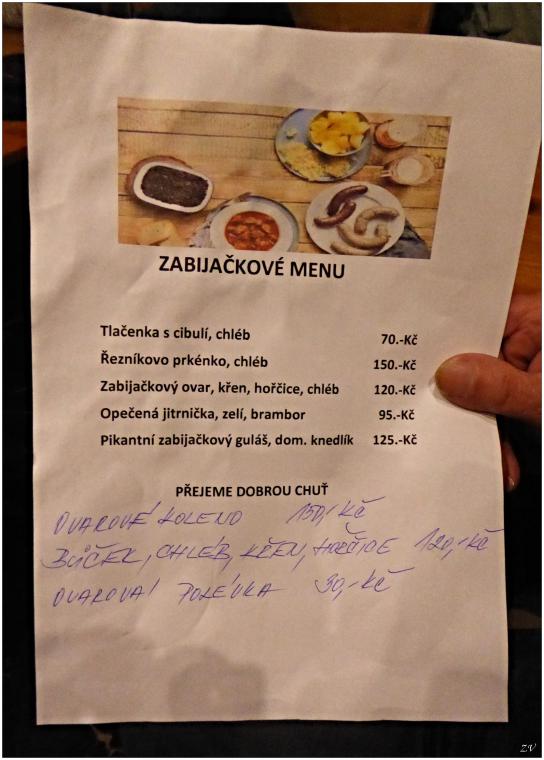 ZABIJAČKOVÉ MENU
Tlačenka s cibulí, chléb 70.-Kč
Řezníkovo prkénko, chléb 150.-Kč
Zabijačkový ovar, křen, hořčice, chléb 120.-Kč
Opečená jitrnička, zelí, brambor 95.-Kč
Pikantní zabijačkový guláš, dom. knedlík 125.-Kč
PŘEJEME DOBROU CHUŤ
OVAROVÉ KOLENO 150,-Kč
BŮČEK, CHLÉB, KŘEN, HOŘČICE 120,-Kč
OVAROVÁ POLÉVKA 30,-Kč
ZV